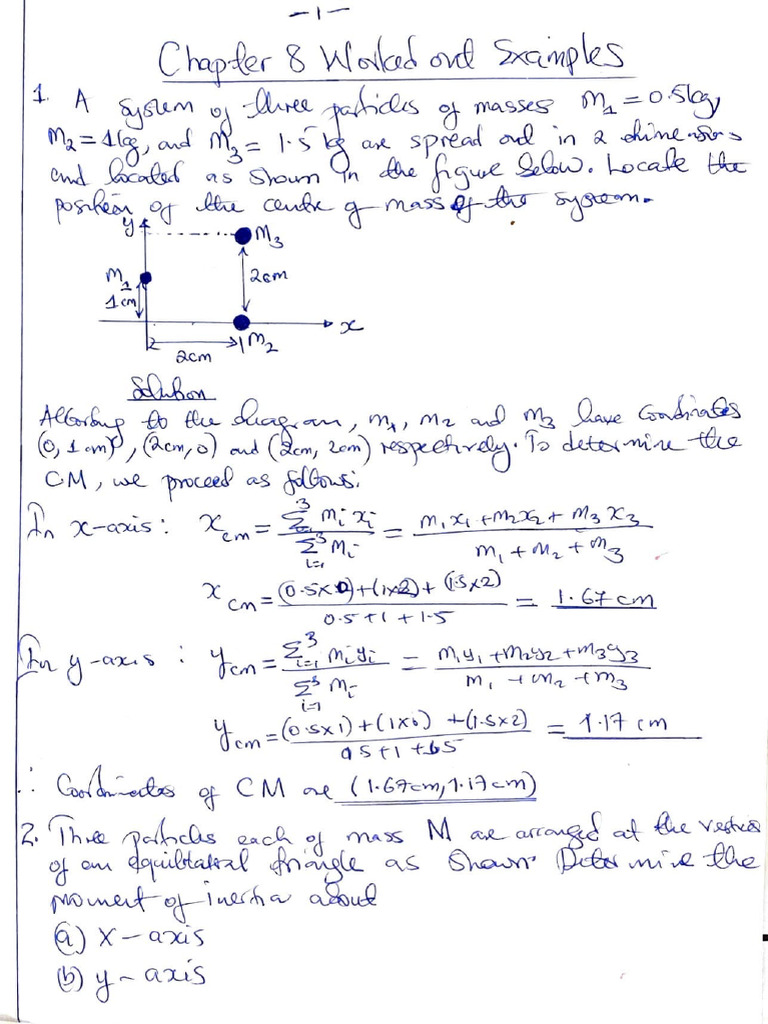 -1-
Chapter 8 Worked out Examples
1. A system of three particles of masses m₁ = 0.5kg,
m₂ = 1kg, and m₃ = 1.5 kg are spread out in 2 dimensions
and located as shown in the figure below. Locate the
position of the centre of mass of the system.
y
m₃
m₁
2cm
1cm
x
m₂
2cm
Solution
According to the diagram, m₁, m₂ and m₃ have coordinates
(0, 1cm), (2cm, 0) and (2cm, 2cm) respectively. To determine the
CM, we proceed as follows:
In x-axis: x_cm = Σ³ᵢ₌₁ mᵢxᵢ / Σ³ᵢ₌₁ mᵢ = m₁x₁ + m₂x₂ + m₃x₃ / m₁ + m₂ + m₃
x_cm = (0.5x0) + (1x2) + (1.5x2) / 0.5 + 1 + 1.5 = 1.67 cm
In y-axis: y_cm = Σ³ᵢ₌₁ mᵢyᵢ / Σ³ᵢ₌₁ mᵢ = m₁y₁ + m₂y₂ + m₃y₃ / m₁ + m₂ + m₃
y_cm = (0.5x1) + (1x0) + (1.5x2) / 0.5 + 1 + 1.5 = 1.17 cm
∴ Coordinates of CM are (1.67cm, 1.17cm)
2. Three particles each of mass M are arranged at the vertices
of an equilateral triangle as shown. Determine the
moment of inertia about
(a) x-axis
(b) y-axis